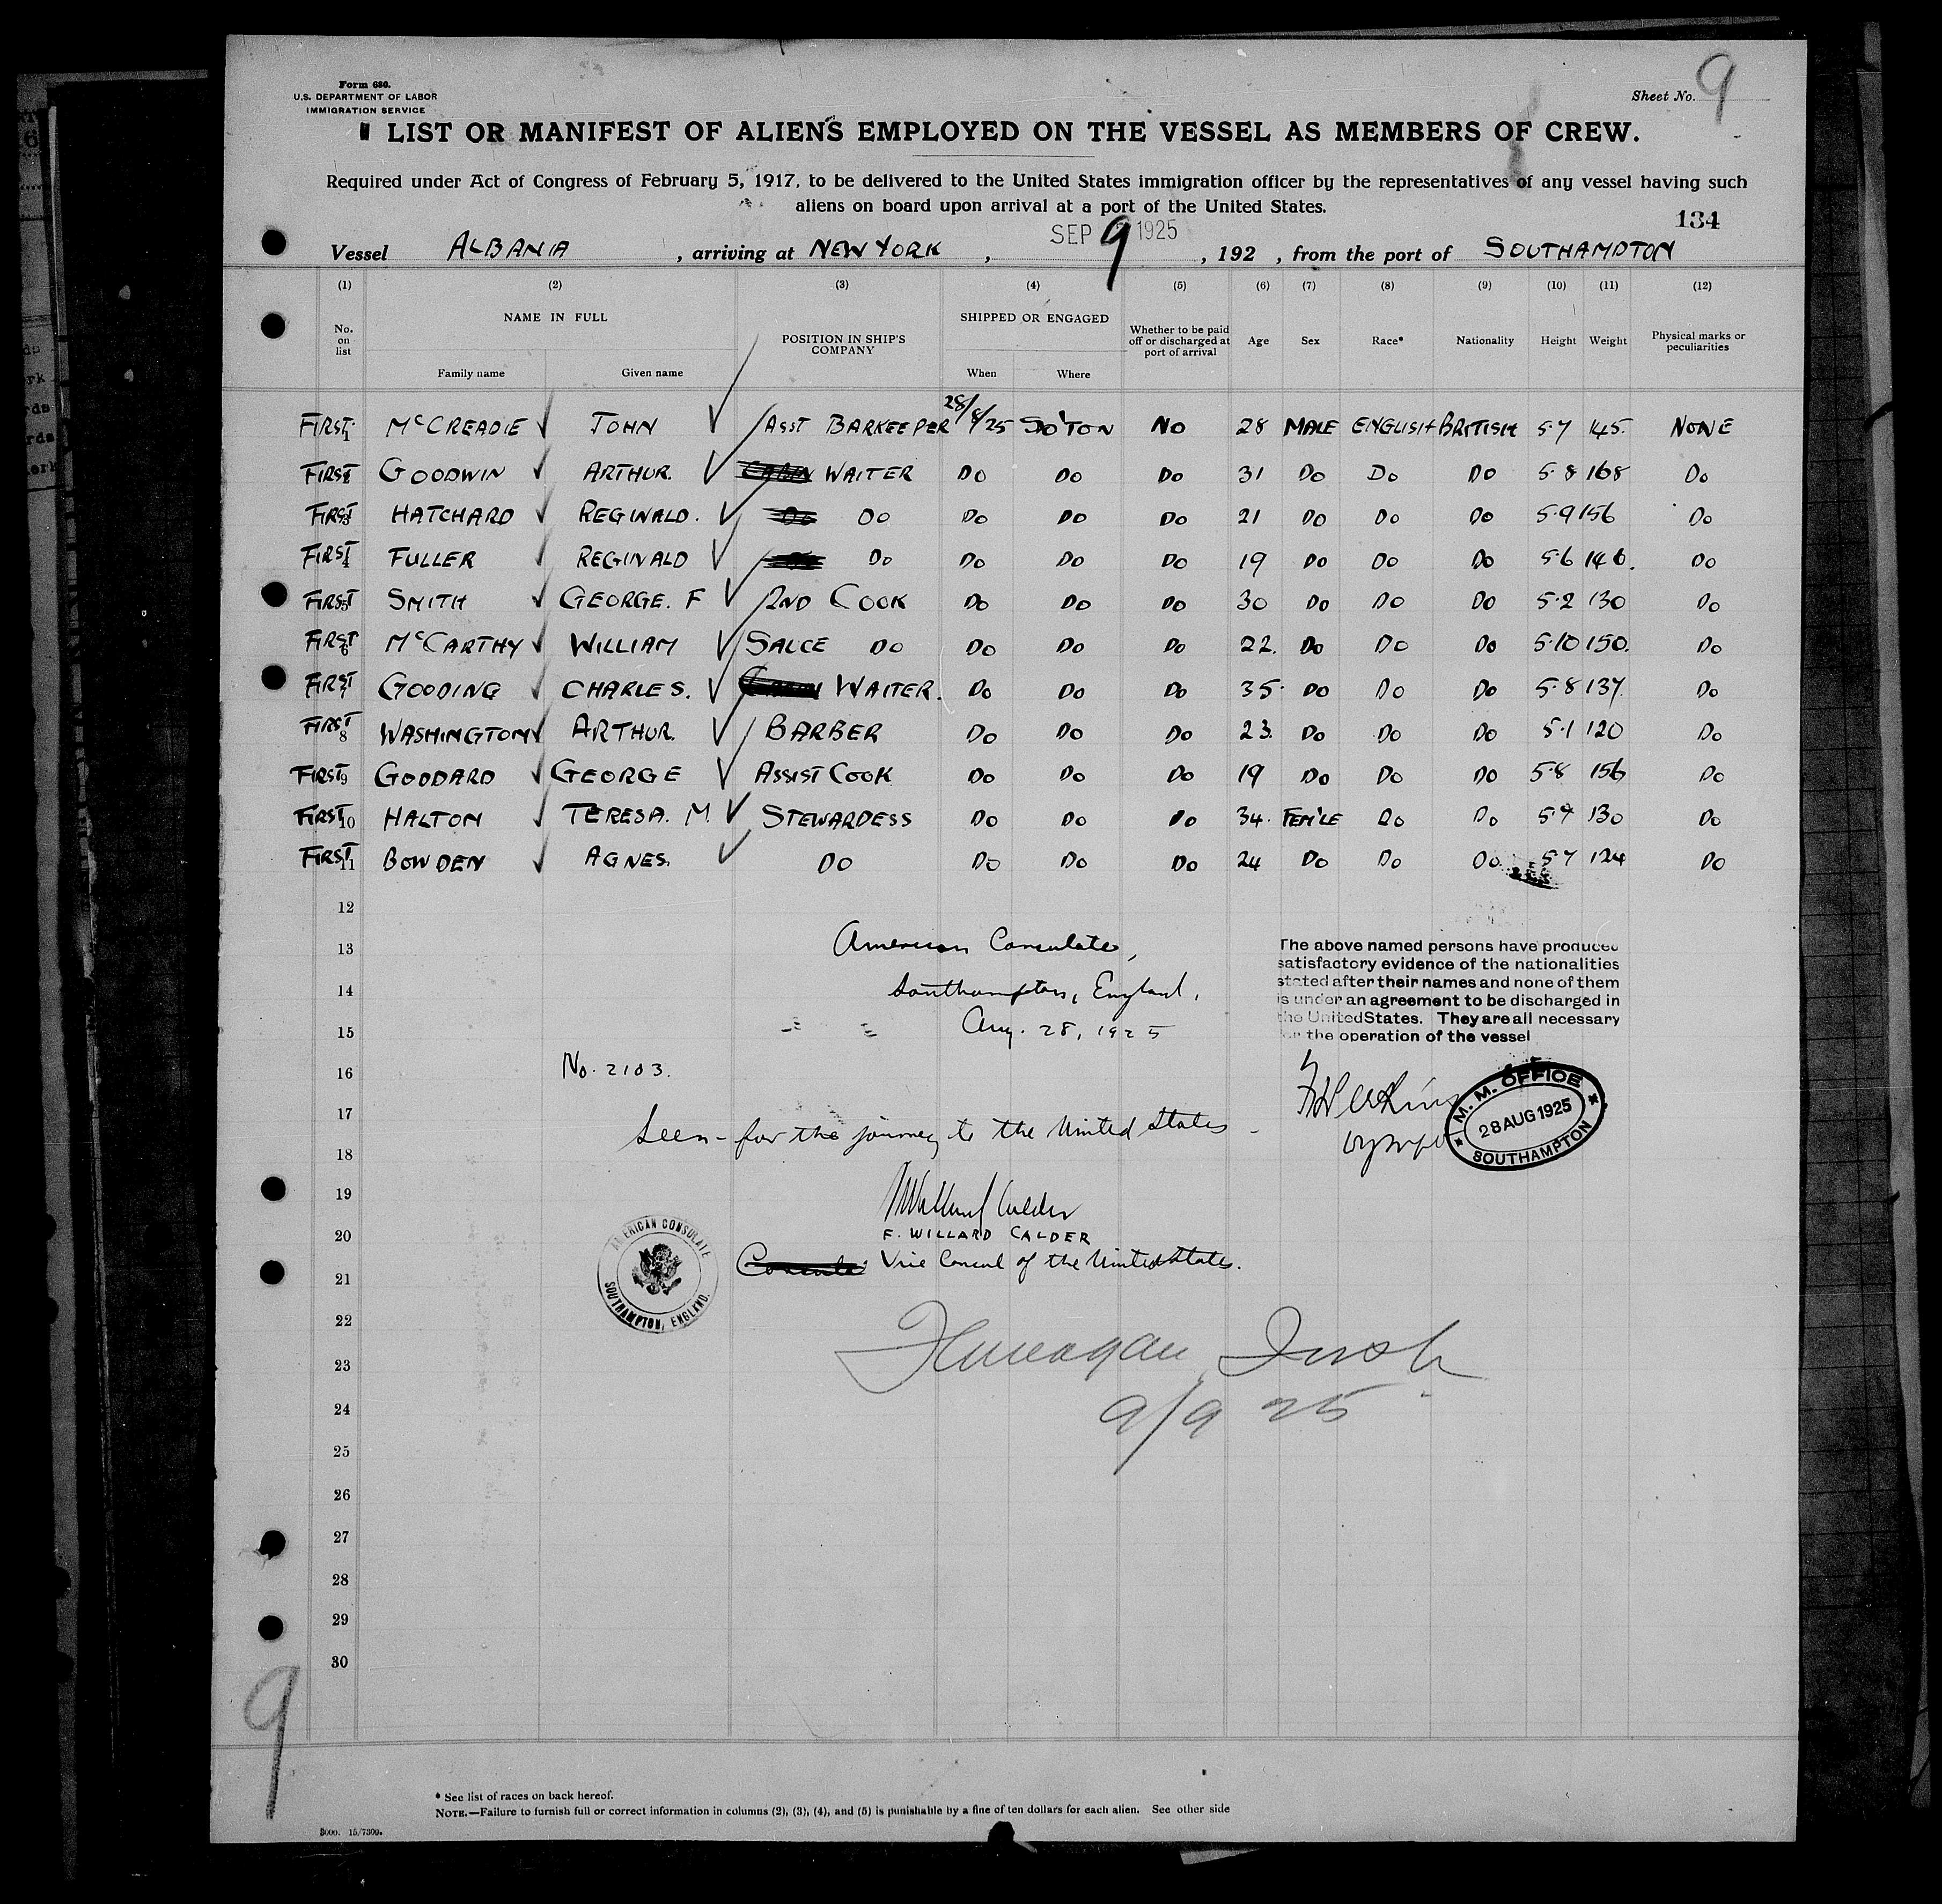 Form 680.
U.S. DEPARTMENT OF LABOR
IMMIGRATION SERVICE
Sheet No. 9
LIST OR MANIFEST OF ALIENS EMPLOYED ON THE VESSEL AS MEMBERS OF CREW.
Required under Act of Congress of February 5, 1917, to be delivered to the United States immigration officer by the representatives of any vessel having such
aliens on board upon arrival at a port of the United States.
134
Vessel ALBANIA, arriving at NEW YORK, SEP 9 1925, 192 , from the port of SOUTHAMPTON
(1) (2) (3) (4) (5) (6) (7) (8) (9) (10) (11) (12)
No. on list NAME IN FULL Family name Given name POSITION IN SHIP'S COMPANY SHIPPED OR ENGAGED When Where Whether to be paid off or discharged at port of arrival Age Sex Race* Nationality Height Weight Physical marks or peculiarities
FIRST 1 McCREADIE JOHN ASST BARKEEPER 28/8/25 SO'TON NO 28 MALE ENGLISH BRITISH 5.7 145. NONE
FIRST 2 GOODWIN ARTHUR. WAITER DO DO DO 31 DO DO DO 5.8 168 DO
FIRST 3 HATCHARD REGINALD. DO DO DO DO 21 DO DO DO 5.9 156 DO
FIRST 4 FULLER REGINALD DO DO DO DO 19 DO DO DO 5.6 146. DO
FIRST 5 SMITH GEORGE. F 2ND COOK DO DO DO 30 DO DO DO 5.2 130 DO
FIRST 6 McCARTHY WILLIAM SAUCE DO DO DO DO 22. DO DO DO 5.10 150. DO
FIRST 7 GOODING CHARLES. WAITER. DO DO DO 35. DO DO DO 5.8 137. DO
FIRST 8 WASHINGTON ARTHUR. BARBER DO DO DO 23. DO DO DO 5.1 120 DO
FIRST 9 GODDARD GEORGE ASSIST COOK DO DO DO 19 DO DO DO 5.8 156 DO
FIRST 10 HALTON TERESA. M. STEWARDESS DO DO DO 34. FEM'LE DO DO 5.4 130 DO
FIRST 11 BOWDEN AGNES. DO DO DO DO 24 DO DO DO 5.7 124 DO
12
13
14
15
16
17
18
19
20
21
22
23
24
25
26
27
28
29
30
American Consulate,
Southampton, England,
Aug. 28, 1925
No. 2103.
Seen - for the journey to the United States -
F. WILLARD CALDER
Vice Consul of the United States.
AMERICAN CONSULATE
SOUTHAMPTON, ENGLAND.
The above named persons have produced
satisfactory evidence of the nationalities
stated after their names and none of them
is under an agreement to be discharged in
the United States. They are all necessary
for the operation of the vessel
M. M. OFFICE
28 AUG 1925
SOUTHAMPTON
9/9 25
9
* See list of races on back hereof.
NOTE.—Failure to furnish full or correct information in columns (2), (3), (4), and (5) is punishable by a fine of ten dollars for each alien. See other side